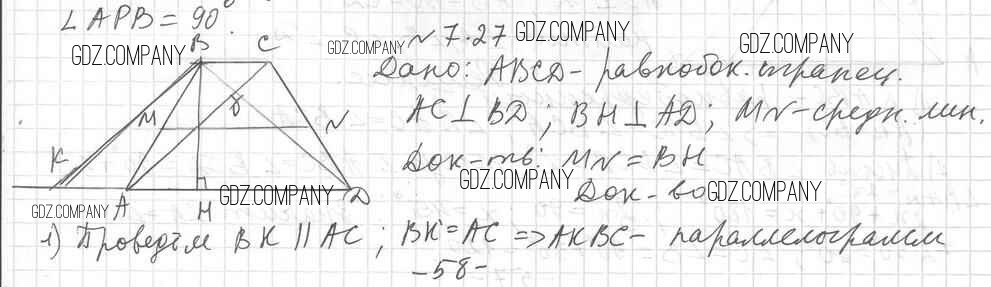 ∠APB = 90°.
№ 7.27
Дано: ABCD - равнобок. трапец.
AC ⊥ BD ; BH ⊥ AD ; MN - средн. лин.
Док-ть: MN = BH
Док-во
B C
M N
K
A H D
1) Проведём BK || AC ; BK = AC => AKBC - параллелограмм
-58-
GDZ.COMPANY
GDZ.COMPANY
GDZ.COMPANY
GDZ.COMPANY
GDZ.COMPANY
GDZ.COMPANY
GDZ.COMPANY
GDZ.COMPANY